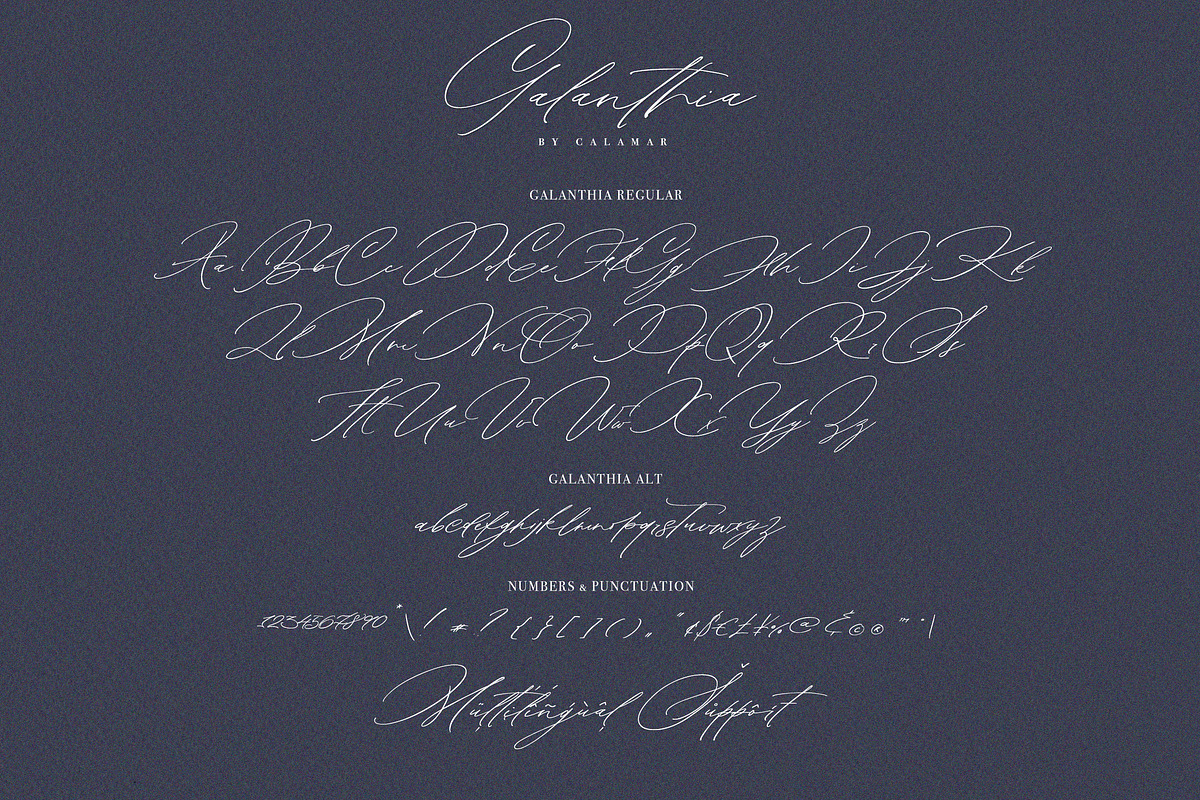 Galanthia
BY CALAMAR
GALANTHIA REGULAR
Aa Bb Cc Dd Ee Ff Gg Hh Ii Jj Kk
Ll Mm Nn Oo Pp Qq Rr Ss
Tt Uu Vv Ww Xx Yy Zz
GALANTHIA ALT
abcdefghijklmnopqrstuvwxyz
NUMBERS & PUNCTUATION
1234567890 * \ ! # ? { } [ ] ( ) „ " ¢ $ € £ ¥ % @ & © ® "" • |
Müļtĩlíñġùâļ Šůppőŕt